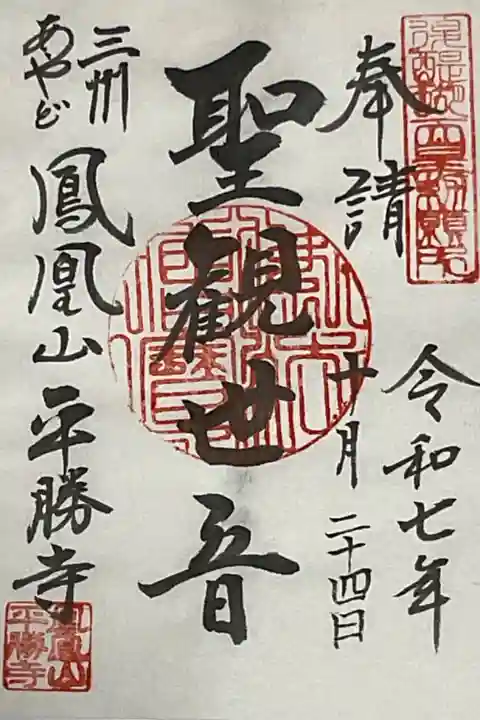 奉請
令和七年
十月二十四日
聖観世音
三州
あやど
鳳凰山平勝寺
鳳凰山
平勝寺